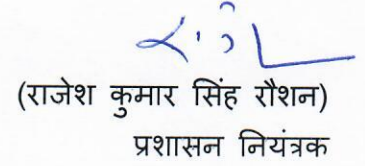 (राजेश कुमार सिंह रौशन)
प्रशासन नियंत्रक